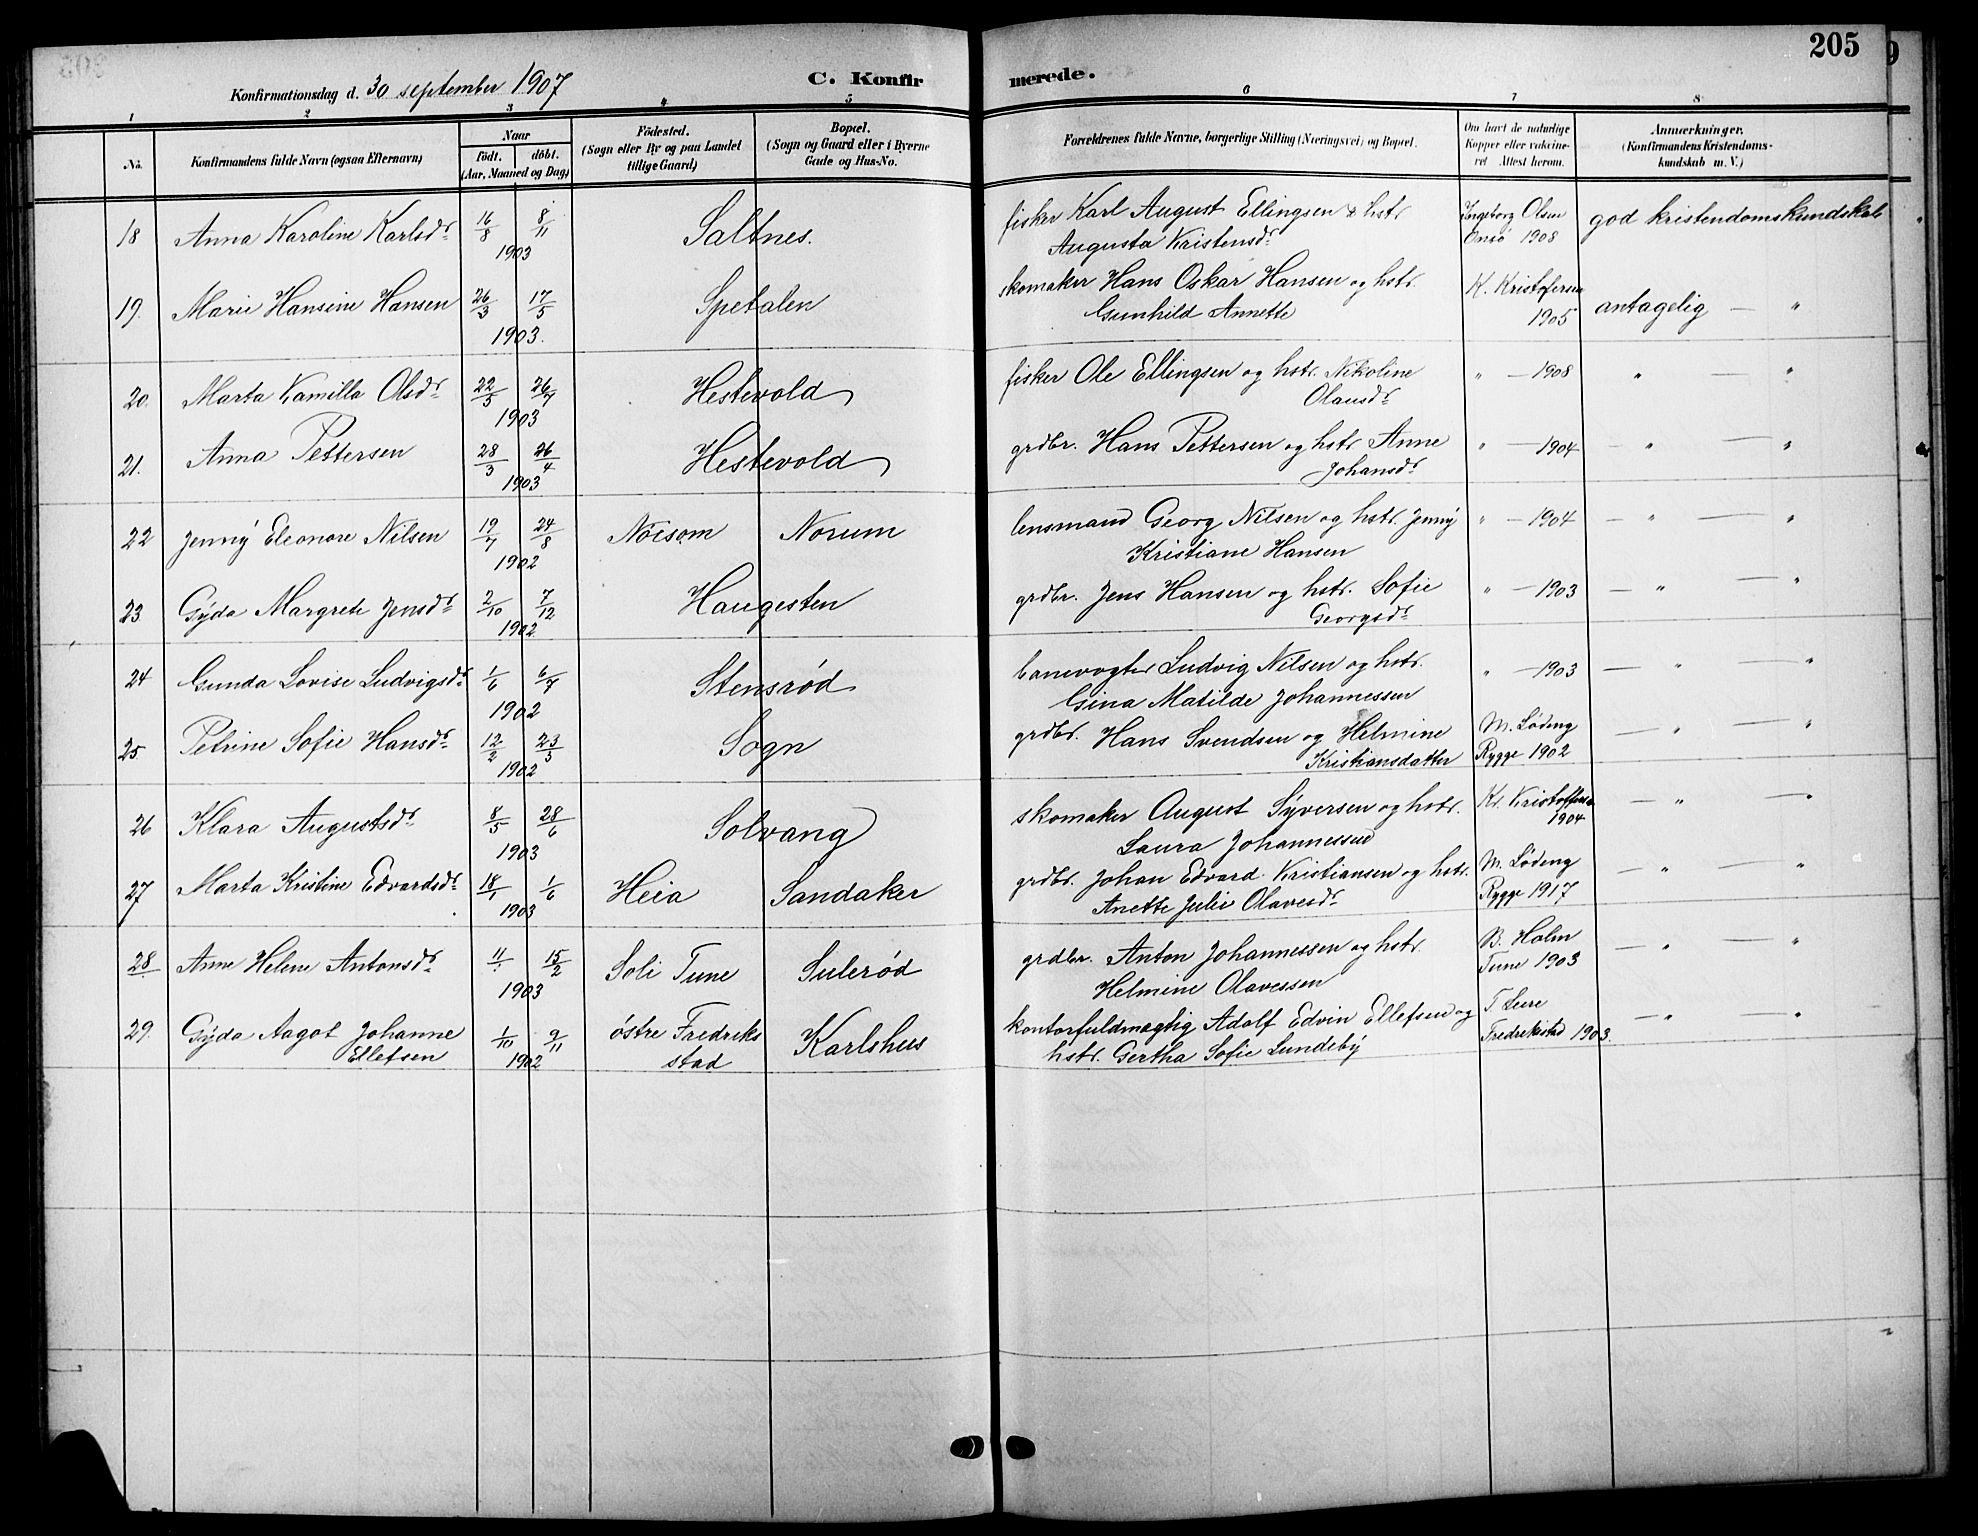 205
Konfirmationsdag d. 30 september 1907
C. Konfirmerede.
1 2 3 4 5 6 7 8
No.
Konfirmandens fulde Navn (ogsaa Efternavn)
Naar
födt. döbt.
(Aar, Maaned og Dag)
Födested.
(Sogn eller By og paa Landet
tillige Gaard)
Bopæl.
(Sogn og Gaard eller i Byerne
Gade og Hus-No.
Forældrenes fulde Navne, borgerlige Stilling (Næringsvei) og Bopæl.
Om havt de naturlige
Kopper eller vakcine-
ret Attest herom.
Anmærkninger.
(Konfirmandens Kristendoms-
kundskab m. V.)
18 Anna Karoline Karlsdr 16/8 8/11 1903 Saltnes. fisker Karl August Ellingsen & hstr Ingeborg Olsen god kristendomskundskab
Augusta Kristensdr Onsø 1908
19. Marie Hansine Hansen 26/3 17/5 1903. Spetalen skomaker Hans Oskar Hansen og hstr. K. Kristofersen antagelig — "
Gunhild Annette 1905
20. Marta Kamilla Olsdr 22/5 26/7 1903 Hestevold fisker Ole Ellingsen og hstr. Nikoline " — 1908 " — "
Olausdr
21. Anna Pettersen 28/3 26/4 1903 Hestevold grdbr. Hans Pettersen og hstr Anne " — 1904 — " — "
Johansdr
22 Jenny Eleonore Nilsen 19/7 24/8 1902 Norsom Norum lensmand Georg Nilsen og hstr. Jenny " — 1904 — " — "
Kristiane Hansen
23. Gyda Margrete Jensdr 2/10 7/12 1902 Haugesten grdbr. Jens Hansen og hstr. Sofie " — 1903 — " — "
Georgsdr
24 Gunda Lovise Ludvigsdr 1/6 6/7 1902 Stensrød banevogter Ludvig Nilsen og hstr. " — 1903 — " — "
Gina Matilde Johannessen
25. Petrine Sofie Hansdr 12/2 23/3 1902 Sogn grdbr. Hans Svendsen og Helmine M. Løding — " — "
Kristiansdatter Rygge 1902
26 Klara Augustsdr 8/5 28/6 1903 Solvang skomaker August Syversen og hstr. Kr. Kristoffersen — " — "
Laura Johannessen 1904
27 Marta Kristine Edvardsdr 18/1 1/6 1903 Heia Sandaker grdbr. Johan Edvard Kristiansen og hstr. M. Løding — " — "
Anette Julie Olavesdr Rygge 1917
28 Anne Helene Antonsdr 11/1 15/2 1903 Soli Tune Sulerød grdbr. Anton Johannessen og hstr. B. Holm — " — "
Helmine Olavessen Tune 1903
29. Gyda Aagot Johanne 1/10 9/11 1902 østre Fredriks Karlshus kontorfuldmagtig Adolf Edvin Ellefsen og T. Leire — " — "
Ellefsen stad hstr. Gertha Sofie Lundeby Fredrikstad 1903.